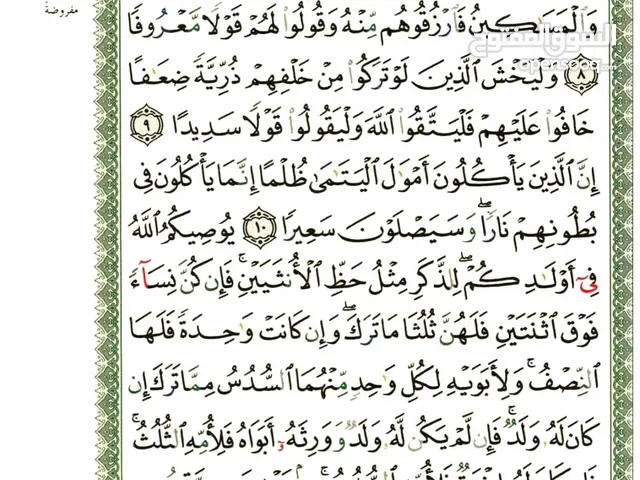 مفروضة
وَٱلْمَسَٰكِينُ فَٱرْزُقُوهُم مِّنْهُ وَقُولُوا۟ لَهُمْ قَوْلًا مَّعْرُوفًا
٨ وَلْيَخْشَ ٱلَّذِينَ لَوْ تَرَكُوا۟ مِنْ خَلْفِهِمْ ذُرِّيَّةً ضِعَٰفًا
خَافُوا۟ عَلَيْهِمْ فَلْيَتَّقُوا۟ ٱللَّهَ وَلْيَقُولُوا۟ قَوْلًا سَدِيدًا ٩
إِنَّ ٱلَّذِينَ يَأْكُلُونَ أَمْوَٰلَ ٱلْيَتَٰمَىٰ ظُلْمًا إِنَّمَا يَأْكُلُونَ فِى
بُطُونِهِمْ نَارًا ۖ وَسَيَصْلَوْنَ سَعِيرًا ١٠ يُوصِيكُمُ ٱللَّهُ
فِىٓ أَوْلَٰدِكُمْ ۖ لِلذَّكَرِ مِثْلُ حَظِّ ٱلْأُنثَيَيْنِ ۚ فَإِن كُنَّ نِسَآءً
فَوْقَ ٱثْنَتَيْنِ فَلَهُنَّ ثُلُثَا مَا تَرَكَ ۖ وَإِن كَانَتْ وَٰحِدَةً فَلَهَا
ٱلنِّصْفُ ۚ وَلِأَبَوَيْهِ لِكُلِّ وَٰحِدٍ مِّنْهُمَا ٱلسُّدُسُ مِمَّا تَرَكَ إِن
كَانَ لَهُۥ وَلَدٌ ۚ فَإِن لَّمْ يَكُن لَّهُۥ وَلَدٌ وَوَرِثَهُۥٓ أَبَوَاهُ فَلِأُمِّهِ ٱلثُّلُثُ ۚ
السوق المفتوح
opensooq.com